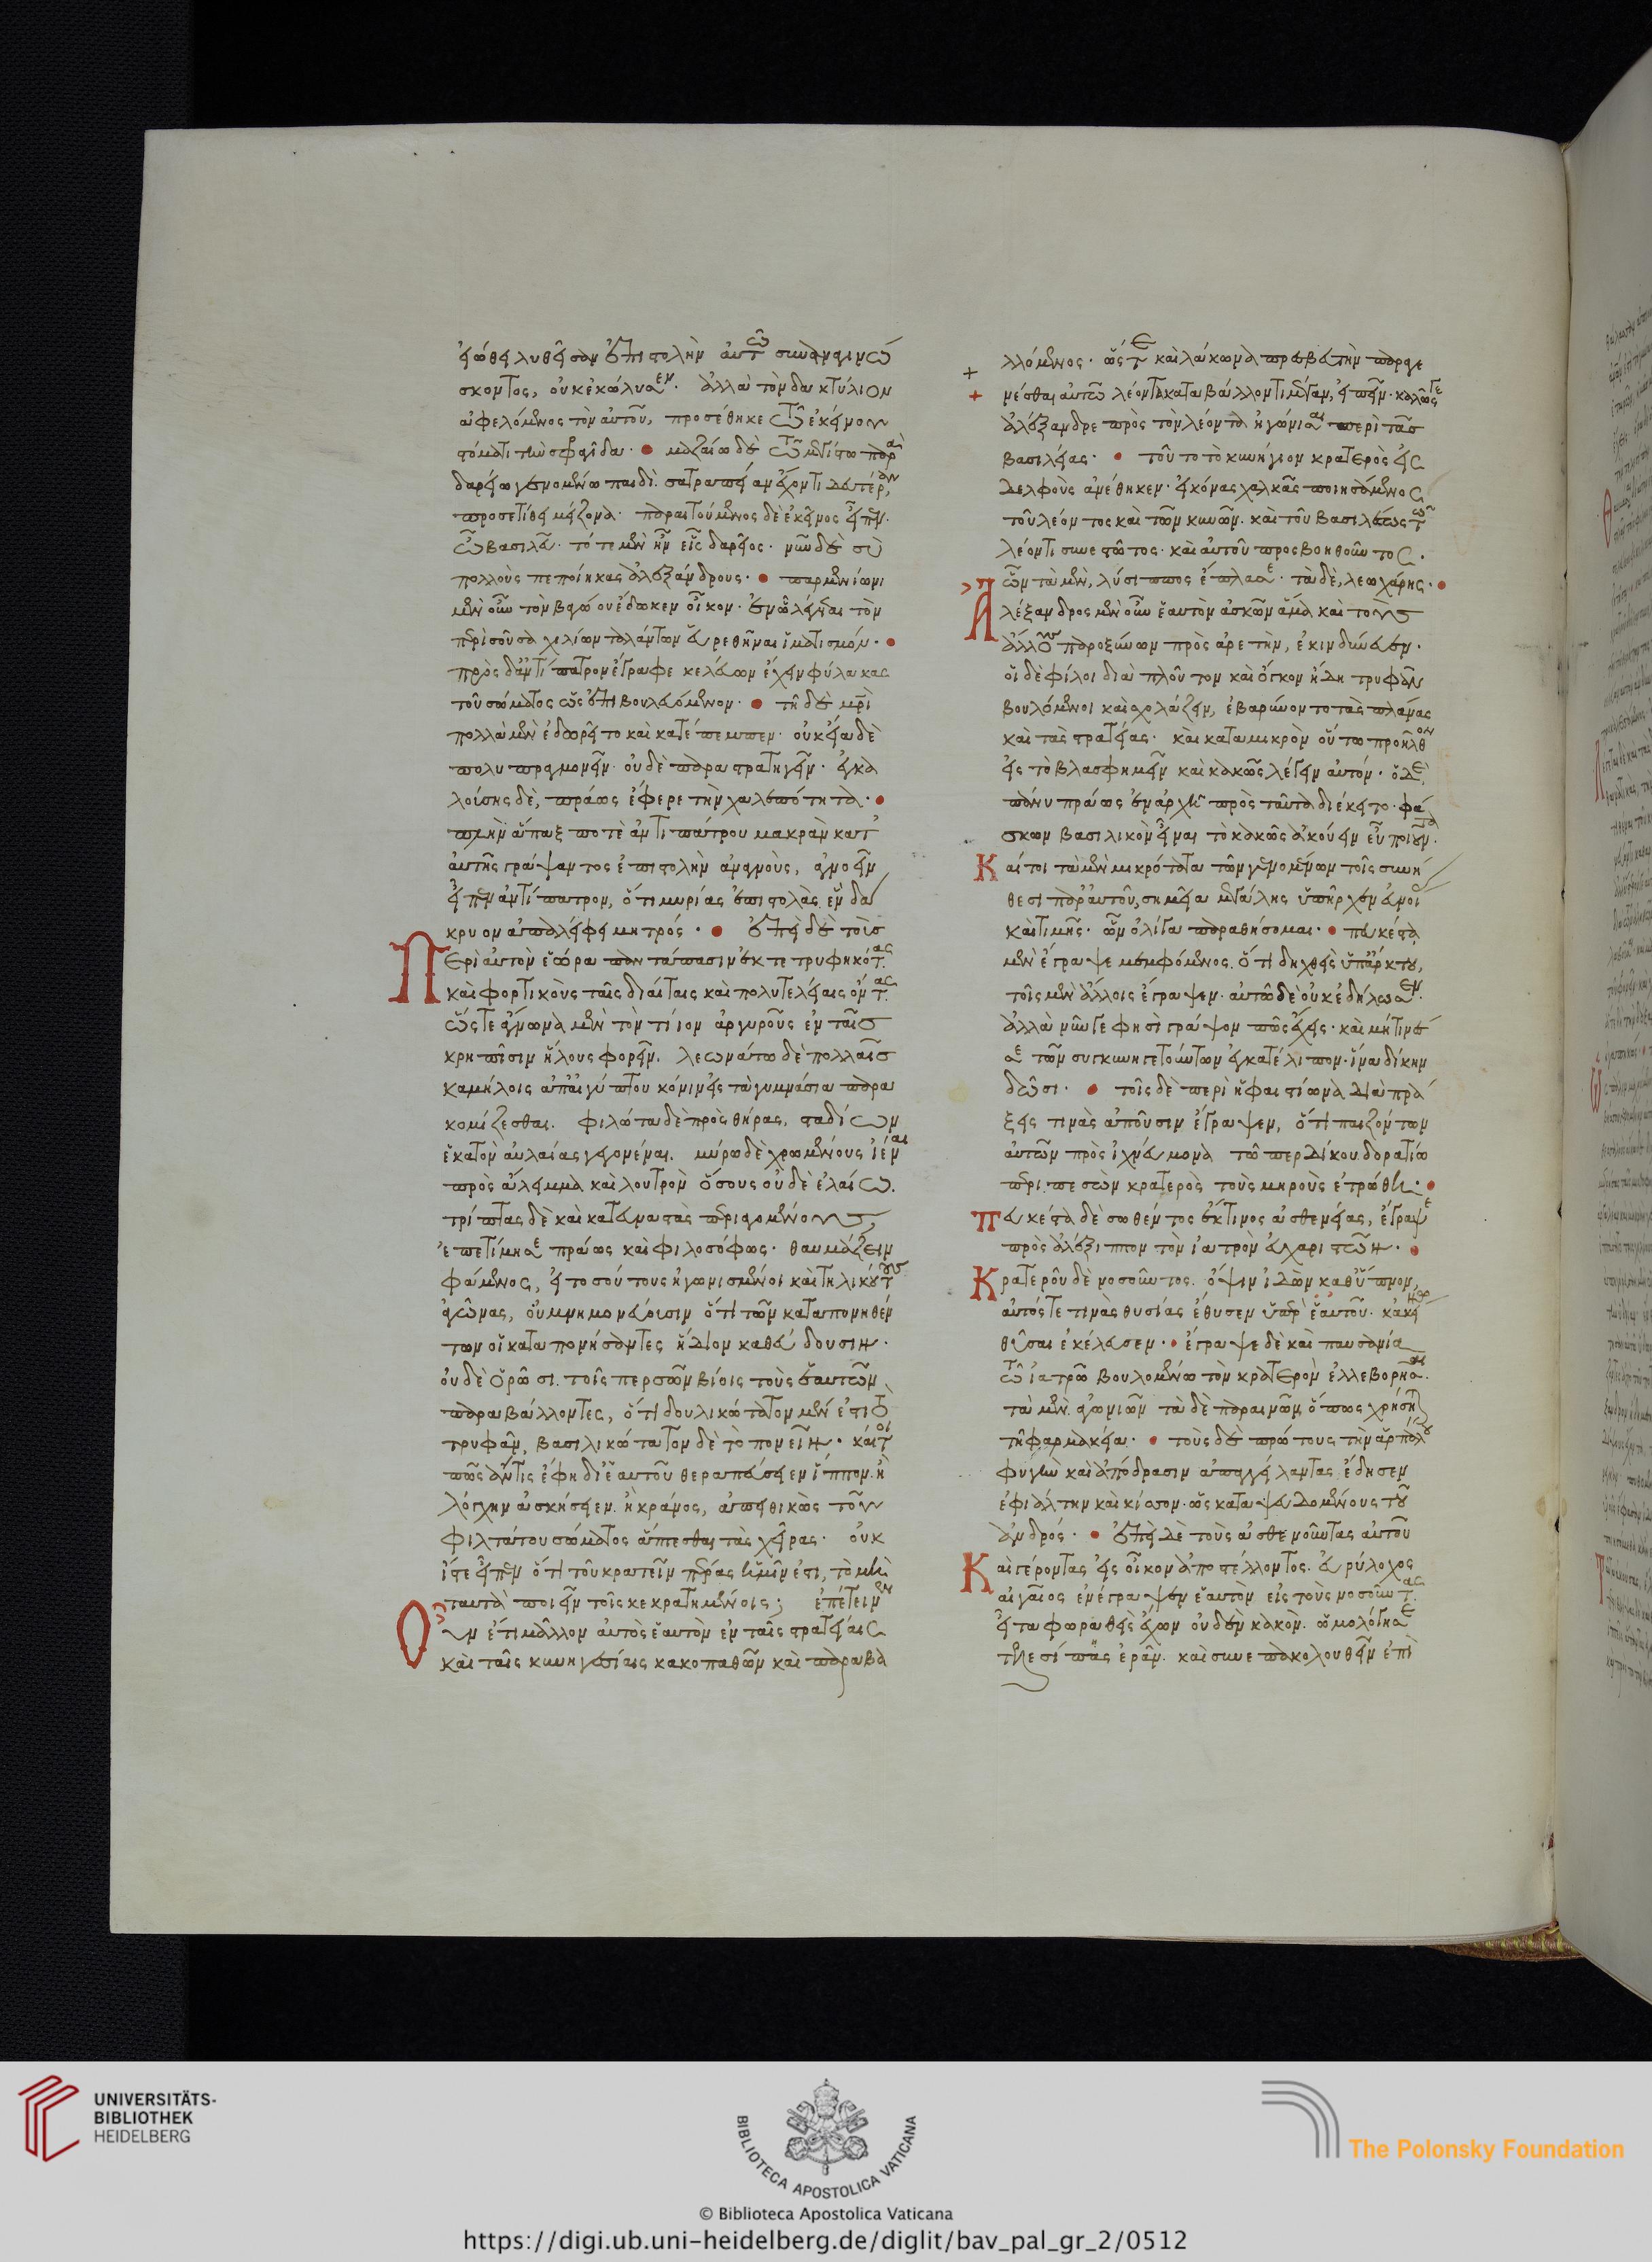 εἰώθει λυθεῖσαν ἐπιστολὴν αὐτῶ συναναγινώ
σκοντος, οὐκ ἐκώλυσεν. ἀλλὰ τὸν δακτύλιον
ἀφελόμενος τὸν αὑτοῦ, προσέθηκε τῶ ἐκείνου
στόματι τὴν σφραγῖδα· μαζαίω δὲ τῶ μεγίστω παρὰ
δαρείω γενομένω παιδὶ σατραπείαν ἔχοντι δευτέραν,
προσετίθει μείζονα· παραιτούμενος δὲ ἐκεῖνος εἶπεν·
ὦ βασιλεῦ· τότε μὲν ἦν εἷς δαρεῖος· νῦν δὲ σὺ
πολλοὺς πεποίηκας ἀλεξάνδρους· παρμενίωνι
μὲν οὖν τὸν βαγώου ἔδωκεν οἶκον· ἐν ὧ λέγεται τὸν
περὶ σοῦσα χιλίων ταλάντων εὑρεθῆναι ἱματισμόν·
πρὸς δ' ἀντίπατρον ἔγραφε κελεύων ἔχειν φύλακας
τοῦ σώματος ὡς ἐπιβουλευόμενον· τῆ δὲ μητρὶ
πολλὰ μὲν ἐδωρεῖτο καὶ κατέπεμπεν· οὐκ εἴα δὲ
πολυπραγμονεῖν· οὐδὲ παραστρατηγεῖν· ἐγκα
λούσης δὲ, πράως ἔφερε τὴν χαλεπότητα·
πλὴν ἅπαξ ποτὲ ἀντιπάτρου μακρὰν κατ'
αὐτῆς γράψαντος ἐπιστολὴν ἀναγνοὺς, ἀγνοεῖν
εἶπεν ἀντίπατρον, ὅτι μυρίας ἐπιστολὰς ἓν δά
κρυον ἀπαλείφει μητρός· ἐπεὶ δὲ τοὺς
Περὶ αὐτὸν ἑώρα παντάπασιν ἐκτετρυφηκότας
καὶ φορτικοὺς ταῖς διαίταις καὶ πολυτελείαις ὄντας
ὥστε ἅγνωνα μὲν τὸν τήιον ἀργυροῦς ἐν ταῖς
κρηπῖσιν ἥλους φορεῖν. λεοννάτω δὲ πολλαῖς
καμήλοις ἀπ' αἰγύπτου κόνιν εἰς τὰ γυμνάσια παρα
κομίζεσθαι. φιλώτα δὲ πρὸς θήρας, σταδίων
ἑκατὸν αὐλαίας γεγονέναι. μύρω δὲ χρωμένους ἰέναι
πρὸς ἄλειμμα καὶ λουτρὸν ὅσους οὐδὲ ἐλαίω.
τρίπτας δὲ καὶ κατευναστὰς περιαγομένους,
ἐπετίμησε πράως καὶ φιλοσόφως· θαυμάζειν
φάμενος, εἰ τοσούτους ἠγωνισμένοι καὶ τηλικούτους
ἀγῶνας, οὐ μνημονεύουσιν ὅτι τῶν καταπονηθέν
των οἱ καταπονήσαντες ἥδιον καθεύδουσιν·
οὐδὲ ὁρῶσι τοῖς περσῶν βίοις τοὺς ἑαυτῶν
παραβάλλοντες, ὅτι δουλικώτατον μέν ἐστι τὸ
τρυφᾶν, βασιλικώτατον δὲ τὸ πονεῖν· καίτοι
πῶς ἄν τις ἔφη δι' ἑαυτοῦ θεραπεύσειεν ἵππον ἢ
λόγχην ἀσκήσειεν ἢ κράνος, ἀπειθικὼς τοῦ
φιλτάτου σώματος ἅπτεσθαι τὰς χεῖρας· οὐκ
ἴστε εἶπεν ὅτι τοῦ κρατεῖν πέρας ἡμῖν ἐστι, τὸ μὴ
ταυτὰ ποιεῖν τοῖς κεκρατημένοις; ἐπέτεινεν
Οὖν ἔτι μᾶλλον αὐτὸς ἑαυτὸν ἐν ταῖς στρατείαις
καὶ ταῖς κυνηγεσίαις κακοπαθῶν καὶ παραβα
λλόμενος· ὥστε καὶ λάκωνα πρεσβευτὴν παραγε
νέσθαι αὐτῶ λέοντα καταβάλλοντι μέγαν, εἰπεῖν· καλῶς γε
ἀλέξανδρε πρὸς τὸν λέοντα ἠγώνισαι περὶ τᾶς
βασιλείας· τοῦτο τὸ κυνήγιον κρατερὸς εἰς
δελφοὺς ἀνέθηκεν· εἰκόνας χαλκᾶς ποιησάμενος
τοῦ λέοντος καὶ τῶν κυνῶν· καὶ τοῦ βασιλέως τῶ
λέοντι συνεστῶτος· καὶ αὐτοῦ προσβοηθοῦντος·
ὧν τὰ μὲν, λύσιππος ἔπλασε· τὰ δὲ, λεωχάρης·
Ἀλέξανδρος μὲν οὖν ἑαυτὸν ἀσκῶν ἅμα καὶ τοὺς
ἄλλους παροξύνων πρὸς ἀρετὴν, ἐκινδύνευεν·
οἱ δὲ φίλοι διὰ πλοῦτον καὶ ὄγκον ἤδη τρυφᾶν
βουλόμενοι καὶ σχολάζειν, ἐβαρύνοντο τὰς πλάνας
καὶ τὰς στρατείας· καὶ κατὰ μικρὸν οὕτω προῆλθον
εἰς τὸ βλασφημεῖν καὶ κακῶς λέγειν αὐτόν· ὁ δὲ
πάνυ πράως ἐν ἀρχῆ πρὸς ταῦτα διέκειτο· φά
σκων βασιλικὸν εἶναι τὸ κακῶς ἀκούειν εὖ ποιοῦντα·
Καίτοι τὰ μὲν μικρότατα τῶν γενομένων τοῖς συνή
θεσι παρ' αὐτοῦ, σημεῖα μεγάλης ὑπῆρχεν εὐνοί
καὶ τιμῆς· ὧν ὀλίγα παραθήσομαι· πευκέστα
μὲν ἔγραψε μεμφόμενος ὅτι δηχθεὶς ὑπ' ἄρκτου,
τοῖς μὲν ἄλλοις ἔγραψεν· αὐτῶ δὲ οὐκ ἐδήλωσεν·
ἀλλὰ νῦν γε φησὶ γράψον πῶς ἔχεις· καὶ μή τινές
σε τῶν συγκυνηγετούντων ἐγκατέλιπον· ἵνα δίκην
δῶσι· τοῖς δὲ περὶ ἡφαιστίωνα διὰ πρά
ξεις τινὰς ἀποῦσιν ἔγραψεν, ὅτι παιζόντων
αὐτῶν πρὸς ἰχνεύμονα τῶ περδίκου δορατίω
περιπεσὼν κρατερὸς τοὺς μηροὺς ἐτρώθη·
Πευκέστα δὲ σωθέντος ἔκ τινος ἀσθενείας, ἔγραψε
πρὸς ἀλέξιππον τὸν ἰατρὸν εὐχαριστῶν·
Κρατεροῦ δὲ νοσοῦντος ὄψιν ἰδὼν καθ' ὕπνον,
αὐτός τε τινὰς θυσίας ἔθυσεν ὑπὲρ ἑαυτοῦ· κἀκεῖνον
θῦσαι ἐκέλευσεν· ἔγραψε δὲ καὶ παυσανία
τῶ ἰατρῶ βουλομένω τὸν κρατερὸν ἐλλεβορῆσαι·
τὰ μὲν ἀγωνιῶν τὰ δὲ παραινῶν, ὅπως χρήση
τῆ φαρμακεία· τοὺς δὲ πρώτους τὴν ἁρπάλου
φυγὴν καὶ ἀπόδρασιν ἀπαγγείλαντας, ἔδησεν
ἐφιάλτην καὶ κίσσον· ὡς καταψευδομένους τοῦ
ἀνδρός· ἐπεὶ δὲ τοὺς ἀσθενοῦντας αὐτοῦ
Καὶ γέροντας εἰς οἶκον ἀποστέλλοντος· εὐρύλοχος
αἰγαῖος ἐνέγραψεν ἑαυτὸν εἰς τοὺς νοσοῦντας
εἶτα φωραθεὶς ἔχων οὐδὲν κακόν· ὡμολόγησε
τελεσίππας ἐρᾶν· καὶ συνεπακολουθεῖν ἐπὶ
UNIVERSITÄTS-
BIBLIOTHEK
HEIDELBERG
BIBLIOTECA APOSTOLICA VATICANA
The Polonsky Foundation
© Biblioteca Apostolica Vaticana
https://digi.ub.uni-heidelberg.de/diglit/bav_pal_gr_2/0512